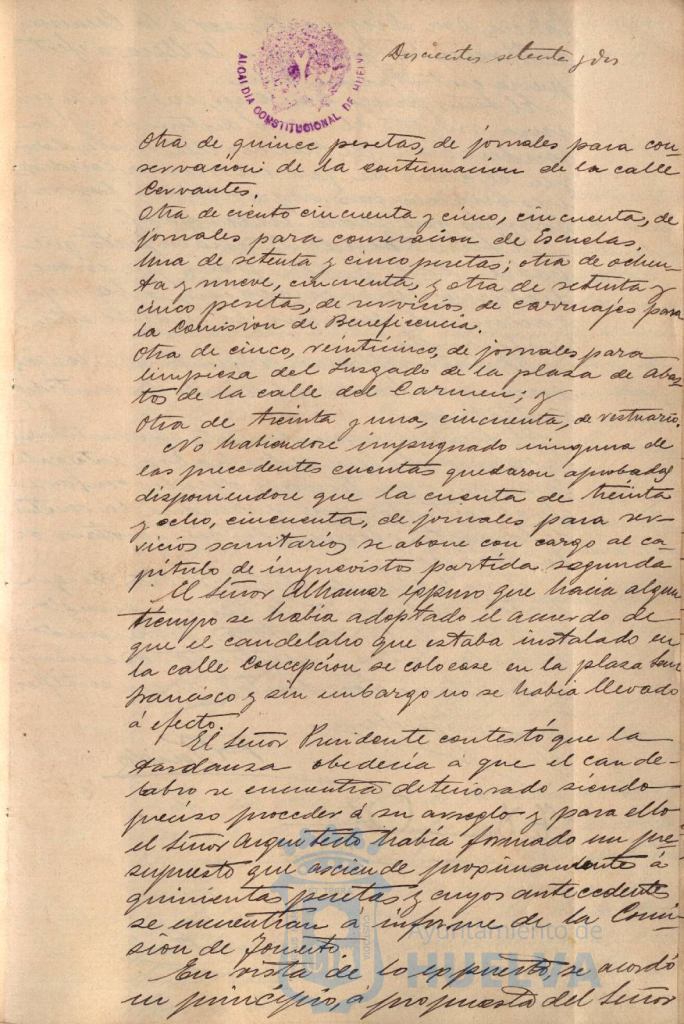 ALCALDIA CONSTITUCIONAL DE HUELVA
Doscientos setenta y dos
Otra de quince pesetas, de jornales para con-
servacion de la continuacion de la calle
Cervantes.
Otra de ciento cincuenta y cinco, cincuenta, de
jornales para conservacion de Escuelas.
Una de setenta y cinco pesetas; otra de ochen-
ta y nueve, cincuenta, y otra de setenta y
cinco pesetas, de servicios de carruajes para
la Comision de Beneficencia.
Otra de cinco, veinticinco, de jornales para
limpieza del Juzgado de la plaza de Abas-
tos de la calle del Carmen; y
Otra de treinta y una, cincuenta, de vestuario.
No habiendose impugnado ninguna de
las precedentes cuentas quedaron aprobadas
disponiendose que la cuenta de treinta
y ocho, cincuenta, de jornales para ser-
vicios sanitarios se abone con cargo al ca-
pitulo de imprevisto partida segunda
El Señor Alhamar expuso que hacia algun
tiempo se habia adoptado el acuerdo de
que el candelabro que estaba instalado en
la calle Concepcion se colocase en la plaza San
Francisco y sin embargo no se habia llevado
á efecto.
El Señor Presidente contestó que la
tardanza obedecia á que el cande-
labro se encuentra deteriorado siendo
preciso proceder á su arreglo y para ello
el Señor Arquitecto habia formado un pre-
supuesto que asciende proximamente á
quinientas pesetas y cuyos antecedentes
se encuentran á informe de la Comi-
sión de Fomento.
En vista de lo expuesto, se acordó
en principio, á propuesta del Señor
Ayuntamiento de
HUELVA